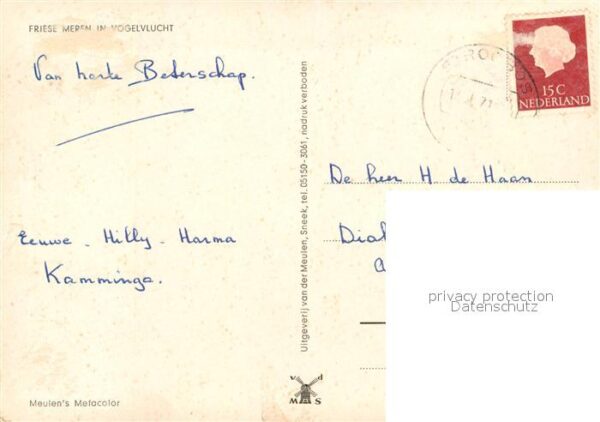 FRIESE MEREN IN VOGELVLUCHT
Van harte Beterschap.
Eeuwe - Hilly - Harma
Kamminga.
Meulen's Mefacolor
Uitgeverij van der Meulen, Sneek, tel. 05150-3061, nadruk verboden
v d
M S
15 C
NEDERLAND
De heer H. de Haan
privacy protection
Datenschutz